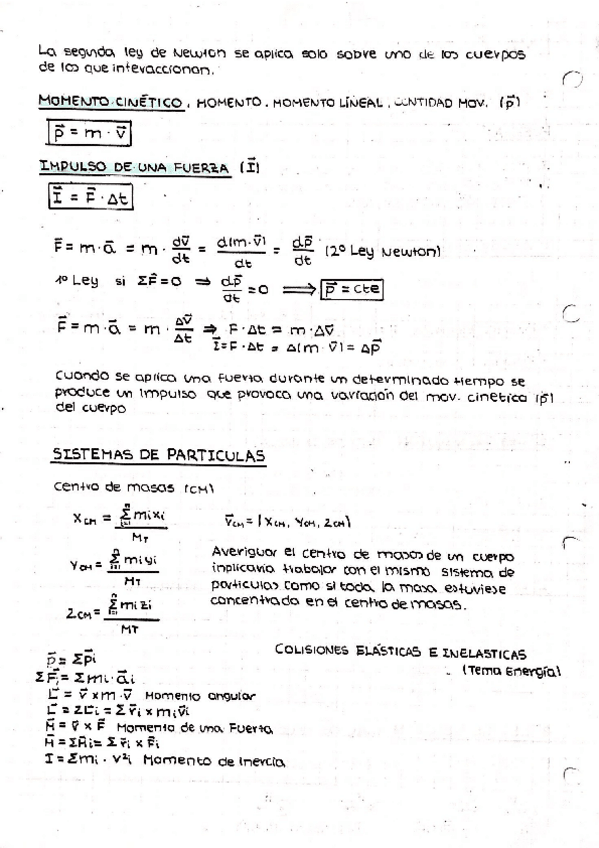 La segunda ley de Newton se aplica solo sobre uno de los cuerpos
de los que interaccionan.
MOMENTO CINÉTICO, MOMENTO, MOMENTO LÍNEAL, CANTIDAD MOV. (p⃗)
p⃗ = m · v⃗
IMPULSO DE UNA FUERZA (I⃗)
I⃗ = F⃗ · Δt
F⃗ = m · a⃗ = m · dv⃗/dt = d(m · v⃗)/dt = dp⃗/dt (2º Ley Newton)
1º Ley si ΣF⃗ = 0 ⇒ dp⃗/dt = 0 ⟹ p⃗ = cte
F⃗ = m · a⃗ = m · Δv⃗/Δt ⇒ F · Δt = m · Δv⃗
I⃗ = F · Δt = Δ(m · v⃗) = Δp⃗
Cuando se aplica una fuerza durante un determinado tiempo se
produce un impulso que provoca una variación del mov. cinetico (p⃗)
del cuerpo
SISTEMAS DE PARTICULAS
Centro de masas (CM)
X_CM = Σ mixi / MT
r⃗_CM = (X_CM, Y_CM, Z_CM)
Y_CM = Σ miyi / MT
Z_CM = Σ mizi / MT
Averiguar el centro de masas de un cuerpo
inplicaria trabajar con el mismo sistema de
particulas como si toda la masa estuviese
concentrada en el centro de masas.
COLISIONES ELÁSTICAS E INELASTICAS
(Tema Energía)
p⃗ = Σp⃗i
ΣF⃗i = Σmi · a⃗i
L⃗ = r⃗ x m · v⃗ Momento angular
L⃗ = ΣL⃗i = Σr⃗i x miv⃗i
M⃗ = r⃗ x F⃗ Momento de una Fuerza
M⃗ = ΣM⃗i = Σr⃗i x F⃗i
I = Σmi · r²i Momento de Inercia